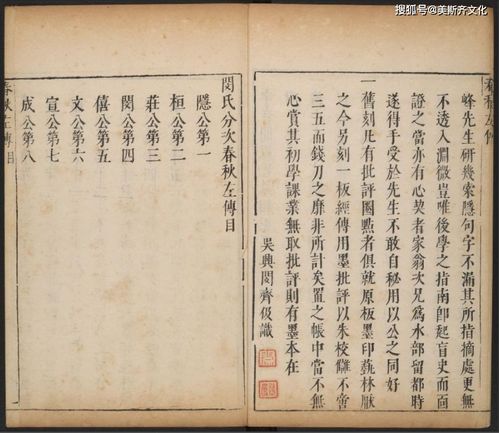 搜狐号@美斯齐文化
春秋左傳
峰先生研幾索隱句字不漏其所指摘處更無
不透入淵微豈唯後學之指南卽起盲史而面
證之當亦有心契者家翁次兄爲水部留都時
遂得手受於先生不敢自秘用以公之同好
一舊刻凡有批評圈點者俱就原板墨印藝林厭
之今另刻一板經傳用墨批評以朱校讐不啻
三五而錢刀之靡非所計矣置之帳中當不無
心賞其初學課業無取批評則有墨本在
吳興閔齊伋識
閔氏分次春秋左傳目
隱公第一
桓公第二
莊公第三
閔公第四
僖公第五
文公第六
宣公第七
成公第八
春秋左傳目